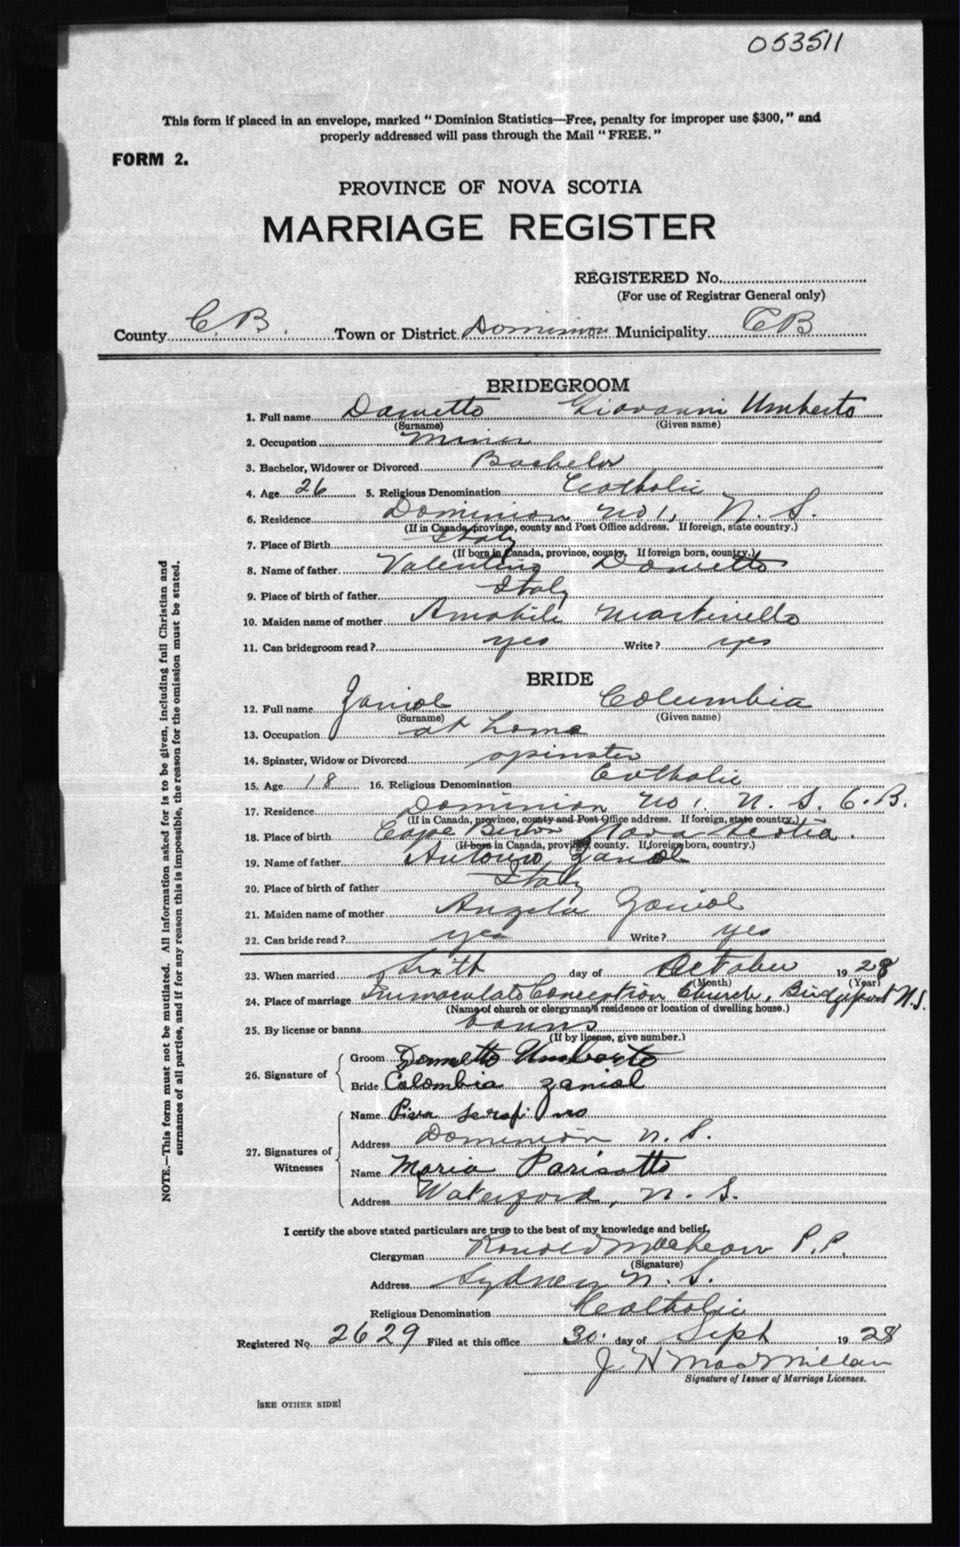 053511
This form if placed in an envelope, marked "Dominion Statistics—Free, penalty for improper use $300," and
properly addressed will pass through the Mail "FREE."
FORM 2.
PROVINCE OF NOVA SCOTIA
MARRIAGE REGISTER
REGISTERED No.
(For use of Registrar General only)
County C.B. Town or District Dominion Municipality C B
BRIDEGROOM
1. Full name Danetto Giovanni Umberto
(Surname) (Given name)
2. Occupation miner
3. Bachelor, Widower or Divorced Bachelor
4. Age 26 5. Religious Denomination Catholic
6. Residence Dominion No 1, N. S.
(If in Canada, province, county and Post Office address. If foreign, state country.)
7. Place of Birth Italy
(If born in Canada, province, county. If foreign born, country.)
8. Name of father Valentino Danetto
9. Place of birth of father Italy
10. Maiden name of mother Amabile Martinello
11. Can bridegroom read? yes Write? yes
BRIDE
12. Full name Zaniol Columbia
(Surname) (Given name)
13. Occupation at home
14. Spinster, Widow or Divorced spinster
15. Age 18 16. Religious Denomination Catholic
17. Residence Dominion No 1, N. S. C.B.
(If in Canada, province, county and Post Office address. If foreign, state country.)
18. Place of birth Cape Breton Nova Scotia.
(If born in Canada, province, county. If foreign born, country.)
19. Name of father Antonio Zaniol
20. Place of birth of father Italy
21. Maiden name of mother Angela Zaniol
22. Can bride read? yes Write? yes
23. When married Sixth day of October 1928
(Month) (Year)
24. Place of marriage Immaculate Conception Church, Bridgeport N.S.
(Name of church or clergyman's residence or location of dwelling house.)
25. By license or banns banns
(If by license, give number.)
26. Signature of
Groom Danetto Umberto
Bride Colombia zaniol
27. Signatures of Witnesses
Name Serafino
Address Dominion N. S.
Name Maria Parisotto
Address Waterford, N. S.
I certify the above stated particulars are true to the best of my knowledge and belief.
Clergyman Ronald MacLean P.P.
(Signature)
Address Sydney N. S.
Religious Denomination Catholic
Registered No. 2629 Filed at this office 30. day of Sept 1928
J H MacMillan
Signature of Issuer of Marriage Licenses.
[SEE OTHER SIDE]
NOTE.—This form must not be mutilated. All information asked for is to be given, including full Christian and
surnames of all parties, and if for any reason this is impossible, the reason for the omission must be stated.